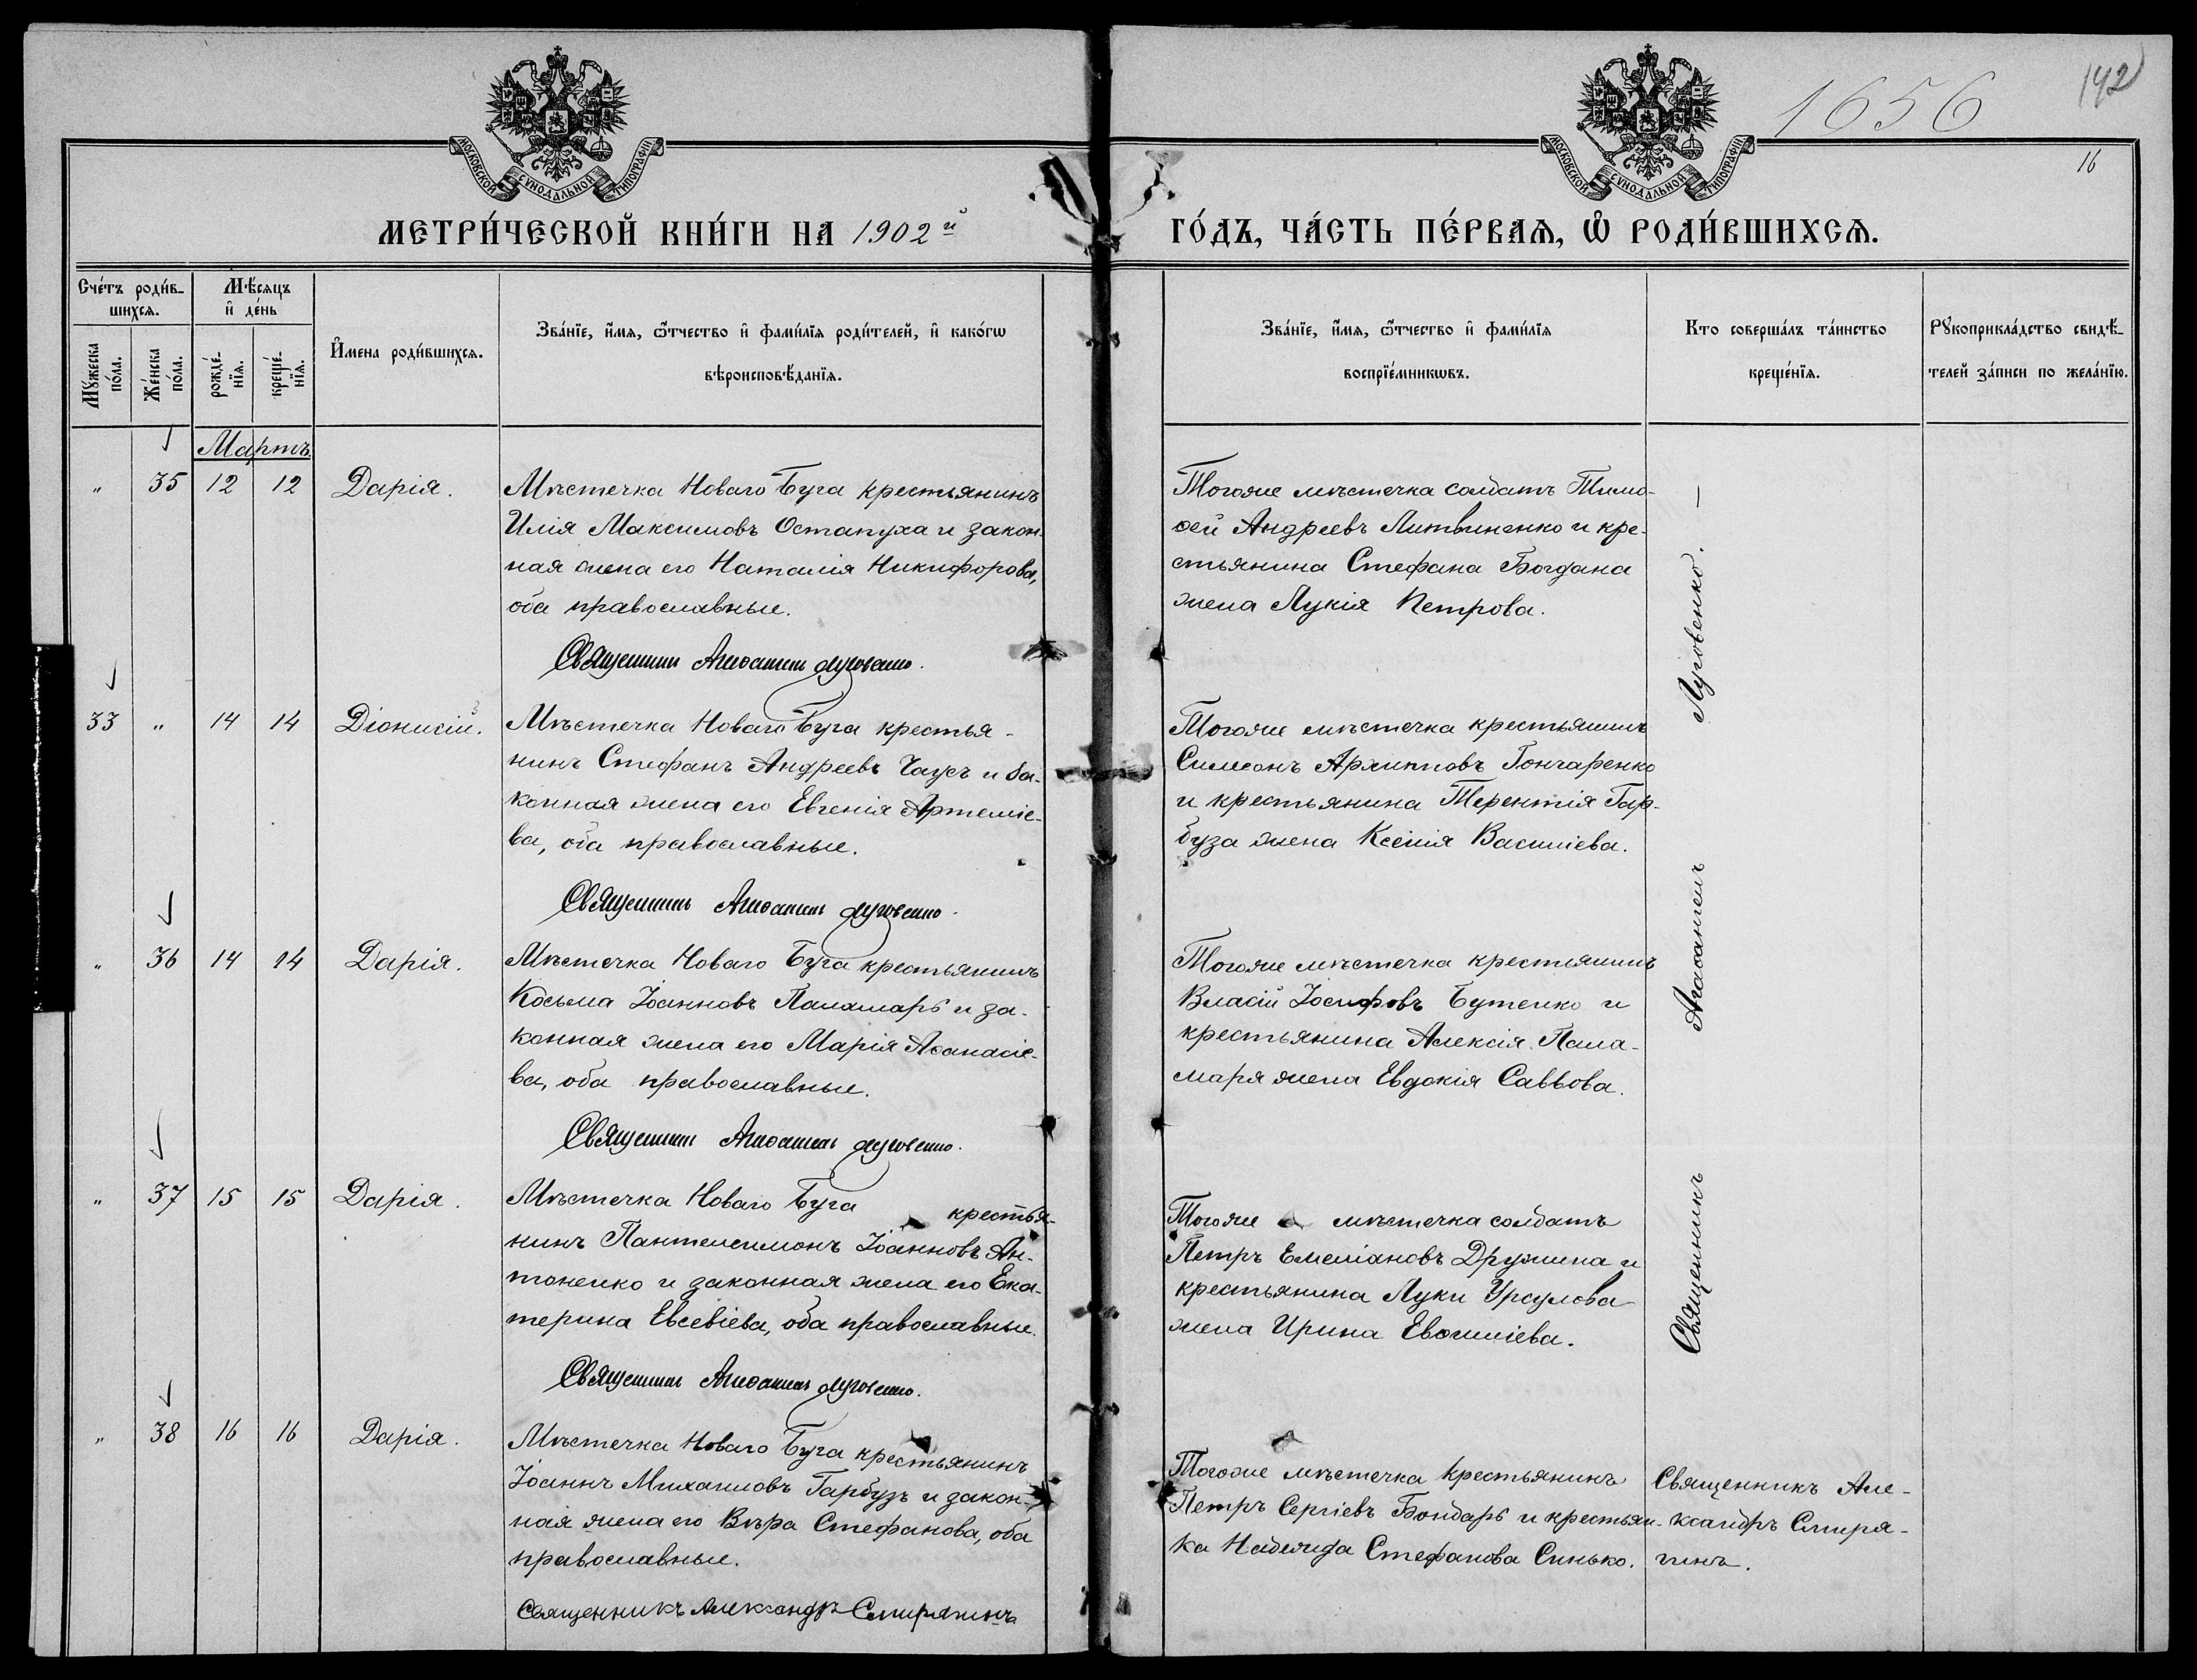 1656
142
16
МОСКОВСКОЙ СѴНОДАЛЬНОЙ ТИПОГРАФІИ
МОСКОВСКОЙ СѴНОДАЛЬНОЙ ТИПОГРАФІИ
МЕТРИ́ЧЕСКОЙ КНИ́ГИ НА 1902й
ГО́ДЪ, ЧА́СТЬ ПЕ́РВАѦ, Ѡ҆ РОДИ́ВШИХСѦ.
Сче́тъ роди́в-
шихсѧ.
Мꙋ́жеска
по́ла.
Же́нска
по́ла.
Мѣ́сѧцъ
и҆ де́нь
рожде́-
нїѧ.
креще́-
нїѧ.
И҆мена роди́вшихсѧ.
Зва́нїе, и҆́мѧ, ѻ҆́тчество и҆ фами́лїѧ роди́телей, и҆ како́гѡ
вѣроисповѣ́данїѧ.
Зва́нїе, и҆́мѧ, ѻ҆́тчество и҆ фами́лїѧ
воспрїе́мникѡвъ.
Кто соверша́лъ та́инство
креще́нїѧ.
Рꙋкоприкла́дство свидѣ́-
телей за́писи по жела́нїю.
Мартъ
" 35 12 12 Дарія.
Мѣстечка Новаго Буга крестьянинъ
Илія Максимовъ Остапуха и закон-
ная жена его Наталія Никифорова,
оба православные.
Священникъ Агаѳангелъ Луговенко.
Тогоже мѣстечка солдатъ Тимо-
ѳей Андреевъ Литвиненко и кре-
стьянина Стефана Богдана
жена Лукія Петрова.
33 " 14 14 Діонисій.
Мѣстечка Новаго Буга крестья-
нинъ Стефанъ Андреевъ Чаусъ и за-
конная жена его Евгенія Артеміе-
ва, оба православные.
Священникъ Агаѳангелъ Луговенко.
Тогоже мѣстечка крестьянинъ
Симеонъ Архиповъ Гончаренко
и крестьянина Терентія Гар-
буза жена Ксенія Василіева.
" 36 14 14 Дарія.
Мѣстечка Новаго Буга крестьянинъ
Косьма Іоанновъ Паламарь и за-
конная жена его Марія Аѳанасіе-
ва, оба православные.
Священникъ Агаѳангелъ Луговенко.
Тогоже мѣстечка крестьянинъ
Власій Іосифовъ Бутенко и
крестьянина Алексія Пала-
маря жена Евдокія Саввова.
" 37 15 15 Дарія.
Мѣстечка Новаго Буга крестья-
нинъ Пантелеимонъ Іоанновъ Ан-
тоненко и законная жена его Ека-
терина Евсевіева, оба православные.
Священникъ Агаѳангелъ Луговенко.
Тогоже мѣстечка солдатъ
Петръ Емеліановъ Дружина и
крестьянина Луки Урсулова
жена Ирина Евѳиміева.
Священникъ Агаѳангелъ Луговенко. —
" 38 16 16 Дарія.
Мѣстечка Новаго Буга крестьянинъ
Іоаннъ Михаиловъ Гарбузъ и закон-
ная жена его Вѣра Стефанова, оба
православные.
Священникъ Александръ Смирягинъ
Тогоже мѣстечка крестьянинъ
Петръ Сергіевъ Бондарь и крестьян-
ка Надежда Стефанова Синько.
Священникъ Але-
ксандръ Смиря-
гинъ.